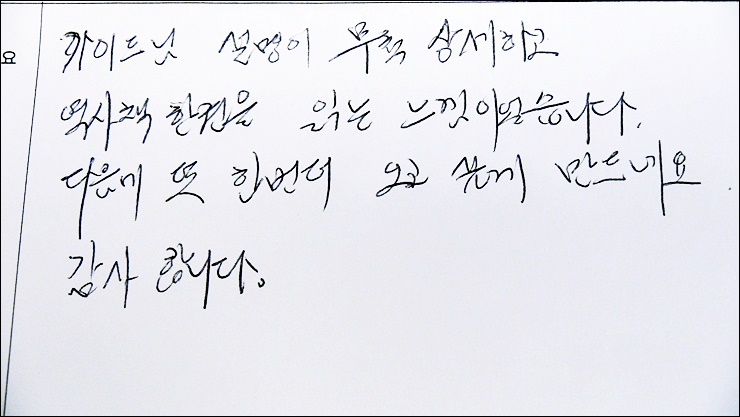 요
가이드님 설명이 무척 상세하고
역사책 한권을 읽는 느낌이었습니다.
다음에 또 한번더 오고 싶게 만드네요
감사 합니다.